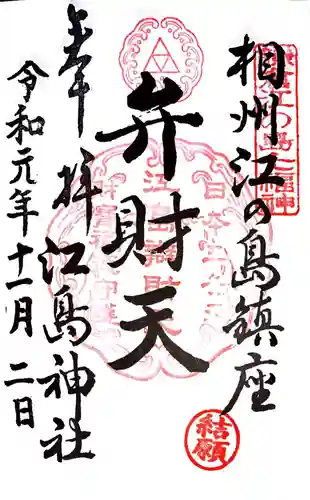 相州江の島鎮座
弁財天
奉拝 江島神社
令和元年十一月二日
結願